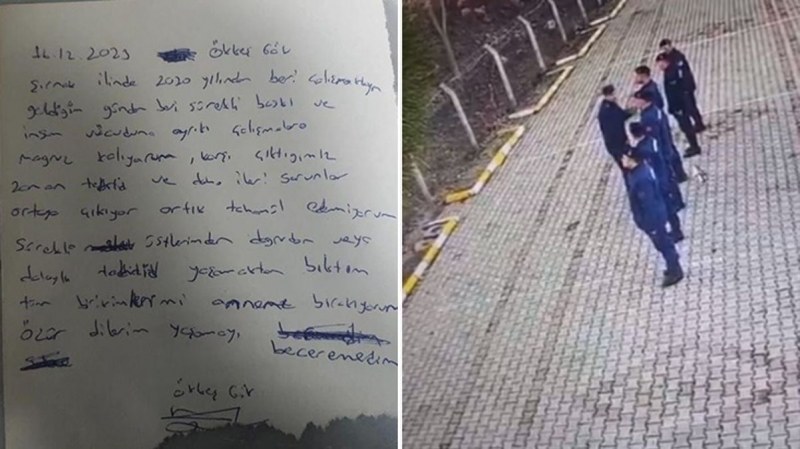 16.12.2023 Ökkeş Gök
Şırnak ilinde 2020 yılından beri çalışmaktayım
geldiğim günden beri sürekli baskı ve
insan vücuduna aykırı çalışmalara
maruz kalıyorum, karşı çıktığımız
zaman tehdid ve daha ileri sorunlar
ortaya çıkıyor artık tahamül edemiyorum
Sürekle üstlerimden doğrudan veya
dolaylı tehdid yaşamaktan bıktım
tüm birikimlerimi anneme bırakıyorum
Özür dilerim yaşamayı
beceremedim
Ökkeş Gök